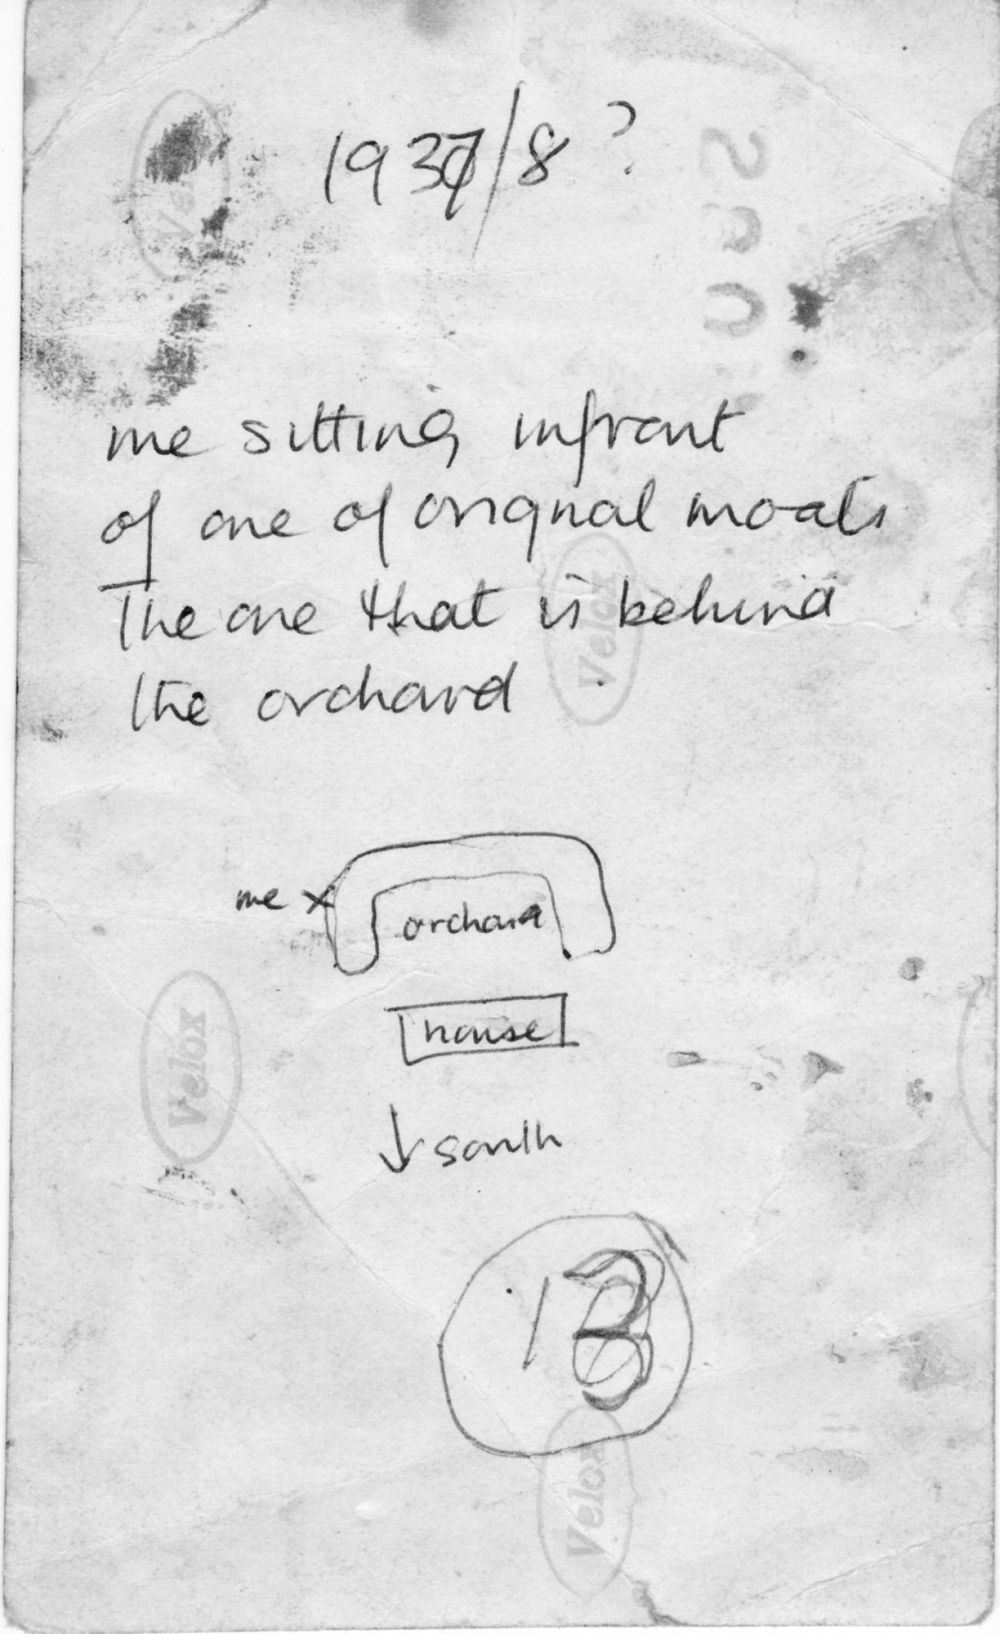 1937/8 ?
Velox
me sitting infront
of one of original moats
The one that is behind
the orchard
Velox
me x
orchard
house
Velox
↓ south
13
Velox